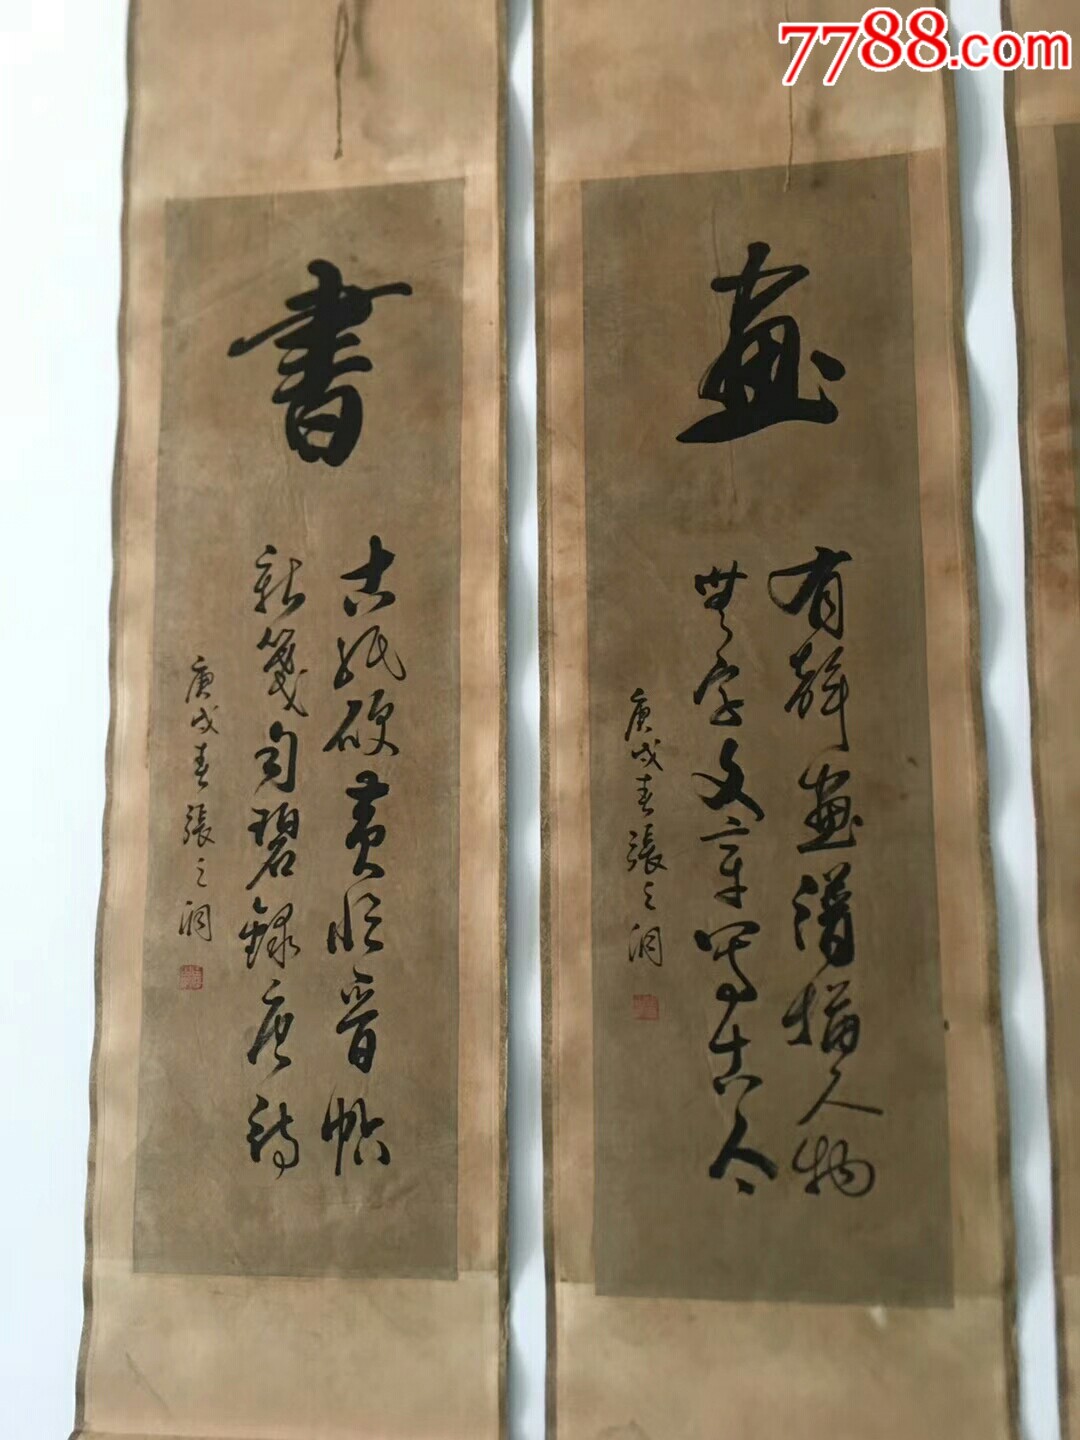 7788.com
書
古紙硬黃臨晉帖
新箋勻碧錄唐詩
庚戌春張之洞
畫
有聲畫譜描人物
無字文章寫古今
庚戌春張之洞